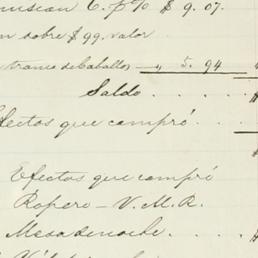 6. p% $ 9.07.
n sobre $99. valor
tranco de Caballos — " 5.94
Saldo . . . $
fectos que compró . . .
$
Efectos que compró
Ropero — V. M. R.
Mesa de noche. . . $